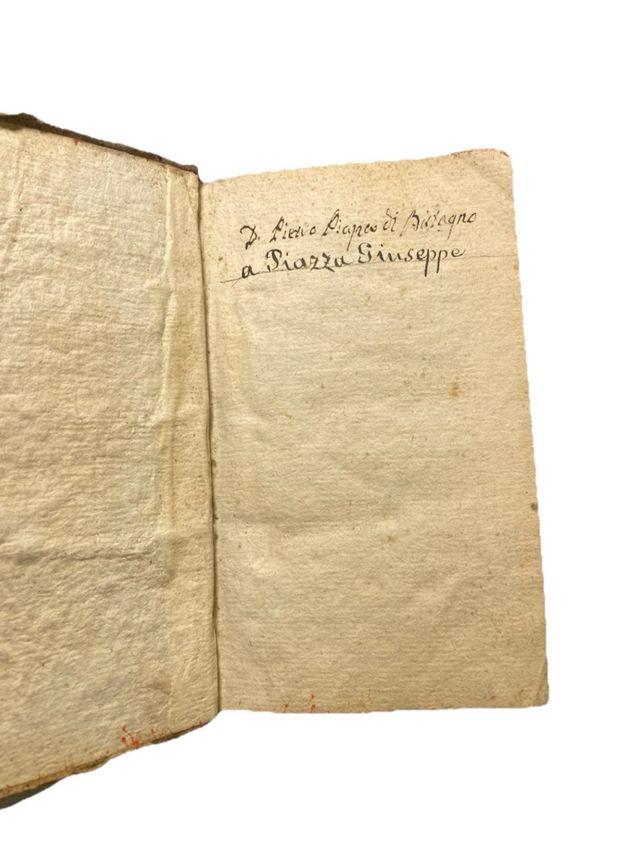 D. Pietro di Bisagno
a Piazza Giuseppe